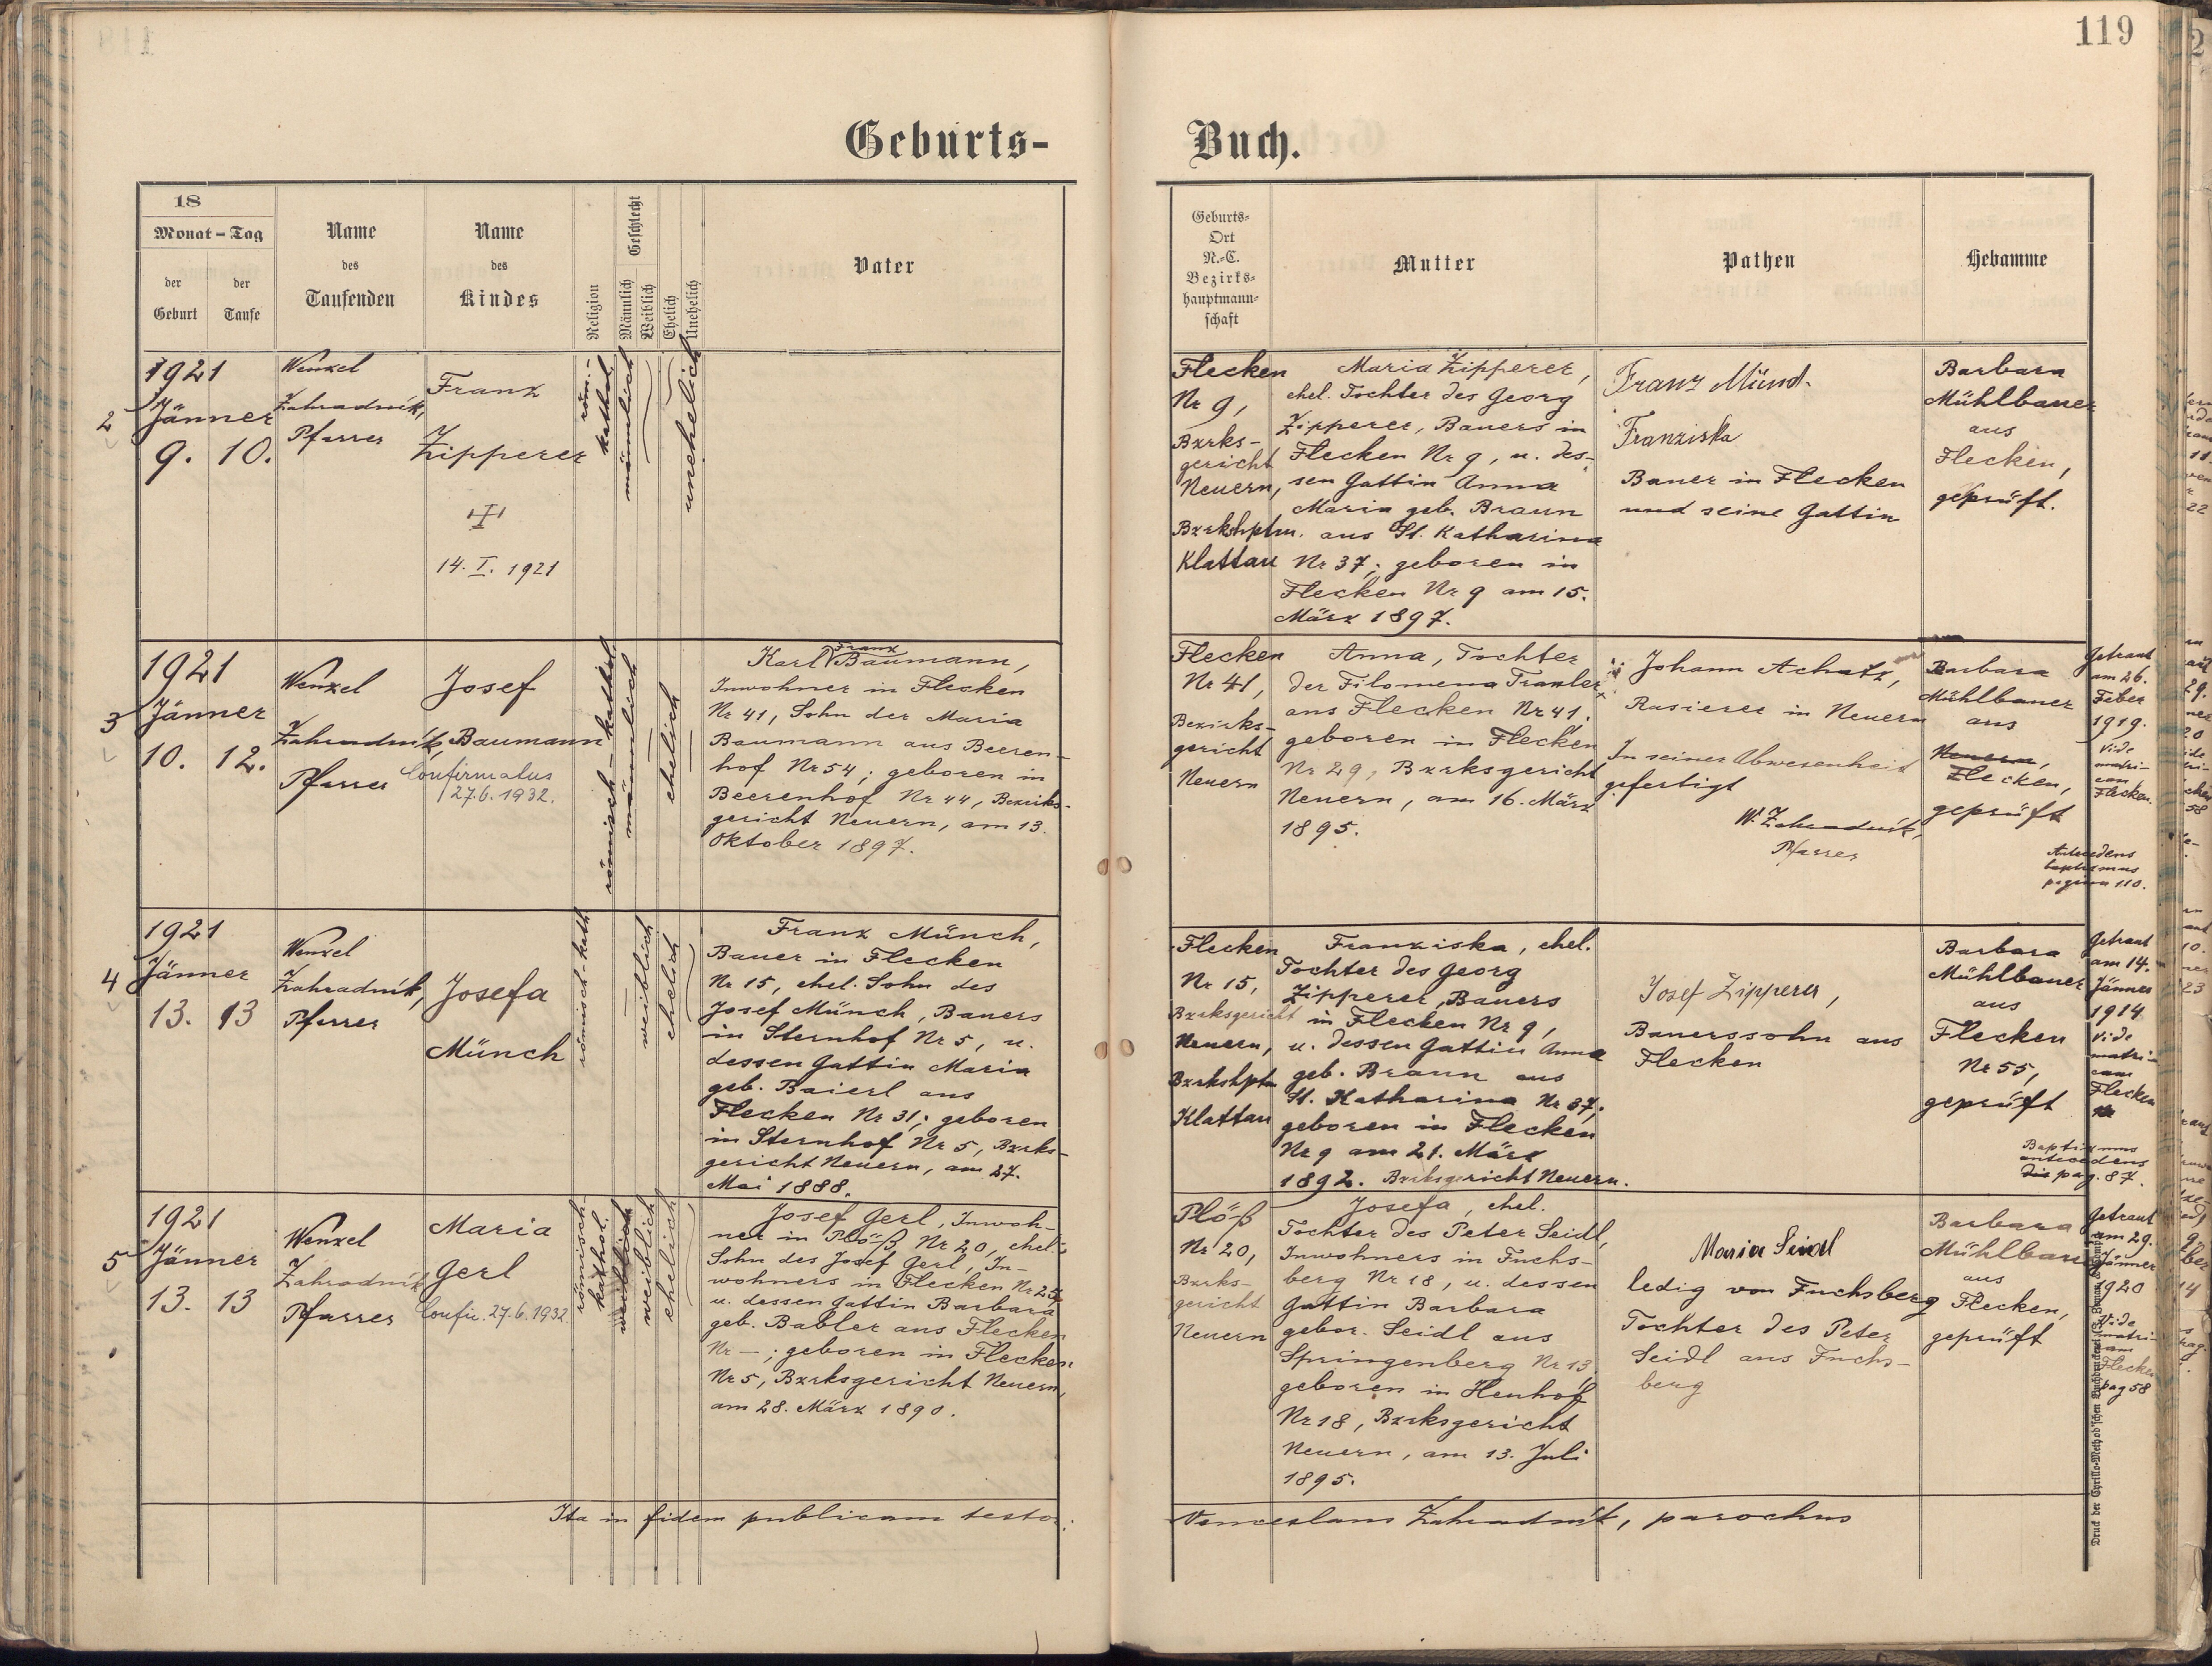 119
Geburts-
Buch.
18
Monat – Tag
der
Geburt
der
Taufe
Name
des
Taufenden
Name
des
Kindes
Religion
Geschlecht
Männlich
Weiblich
Ehelich
Unehelich
Vater
Geburts-
Ort
N.-C.
Bezirks-
hauptmann-
schaft
Mutter
Pathen
Hebamme
2
1921
Jänner
9. 10.
Wenzel
Zahradník,
Pfarrer
Franz
Zipperer
14. I. 1921
röm.-
kathol.
männlich
unehelich
Flecken
Nr 9,
Bzrks-
gericht
Neuern,
Bzrkshptm.
Klattau
Maria Zipperer,
ehel. Tochter des Georg
Zipperer, Bauers in
Flecken Nr 9, u. des-
sen Gattin Anna
Maria geb. Braun
aus St. Katharina
Nr 37; geboren in
Flecken Nr 9 am 15.
März 1897.
Franz Münch
Franziska
Bauer in Flecken
und seine Gattin
Barbara
Mühlbauer
aus
Flecken,
geprüft.
3
1921
Jänner
10. 12.
Wenzel
Zahradník,
Pfarrer
Josef
Baumann
Confirmatus
27.6.1932.
römisch-kathol.
männlich
ehelich
Franz
Karl Baumann,
Inwohner in Flecken
Nr 41, Sohn der Maria
Baumann aus Beeren-
hof Nr 54; geboren in
Beerenhof Nr 44, Bezirks-
gericht Neuern, am 13.
Oktober 1897.
Flecken
Nr 41,
Bezirks-
gericht
Neuern
Anna, Tochter
der Filomena Tranler
aus Flecken Nr 41,
geboren in Flecken
Nr 29, Bzrksgericht
Neuern, am 16. März
1895.
Johann Achatz,
Rasierer in Neuern
In seiner Abwesenheit
gefertigt
W. Zahradník,
Pfarrer
Barbara
Mühlbauer
aus
Neuern,
Flecken,
geprüft
Getraut
am 26.
Feber
1919.
Vide
matri-
cam
Flecken.
Antecedens
baptismus
pagina 110.
4
1921
Jänner
13. 13
Wenzel
Zahradník,
Pfarrer
Josefa
Münch
römisch-kath
weiblich
ehelich
Franz Münch,
Bauer in Flecken
Nr 15, ehel. Sohn des
Josef Münch, Bauers
in Sternhof Nr 5, u.
dessen Gattin Maria
geb. Baierl aus
Flecken Nr 31; geboren
in Sternhof Nr 5, Bzrks-
gericht Neuern, am 27.
Mai 1888.
Flecken
Nr 15,
Bzrksgericht
Neuern,
Bzrkshptm
Klattau
Franziska, ehel.
Tochter des Georg
Zipperer, Bauers
in Flecken Nr 9,
u. dessen Gattin Anna
geb. Braun aus
St. Katharina Nr 37;
geboren in Flecken
Nr 9 am 21. März
1892. Bzrksgericht Neuern.
Josef Zipperer,
Bauerssohn aus
Flecken
Barbara
Mühlbauer
aus
Flecken
Nr 55,
geprüft
Getraut
am 14.
Jänner
1914
Vide
matri-
cam
Flecken
Baptismus
antecedens
pag. 87.
5
1921
Jänner
13. 13
Wenzel
Zahradník
Pfarrer
Maria
Gerl
Confir. 27.6.1932.
römisch-
kathol.
weiblich
ehelich
Josef Gerl, Inwoh-
ner in Plöß Nr 20, ehel.
Sohn des Josef Gerl, In-
wohners in Flecken Nr 25,
u. dessen Gattin Barbara
geb. Babler aus Flecken
Nr –; geboren in Flecken
Nr 5, Bzrksgericht Neuern,
am 28. März 1890.
Plöß
Nr 20,
Bzrks-
gericht
Neuern
Josefa, ehel.
Tochter des Peter Seidl,
Inwohners in Fuchs-
berg Nr 18, u. dessen
Gattin Barbara
gebor. Seidl aus
Springenberg Nr 13,
geboren in Heuhof
Nr 18, Bzrksgericht
Neuern, am 13. Juli
1895.
Maria Seidl
ledig von Fuchsberg
Tochter des Peter
Seidl aus Fuchs-
berg
Barbara
Mühlbauer
aus
Flecken,
geprüft
Getraut
am 29.
Jänner
1920
Vide
matri-
cam
Flecken
pag 58
Ita in fidem publicam testor:
Venceslaus Zahradník, parochus